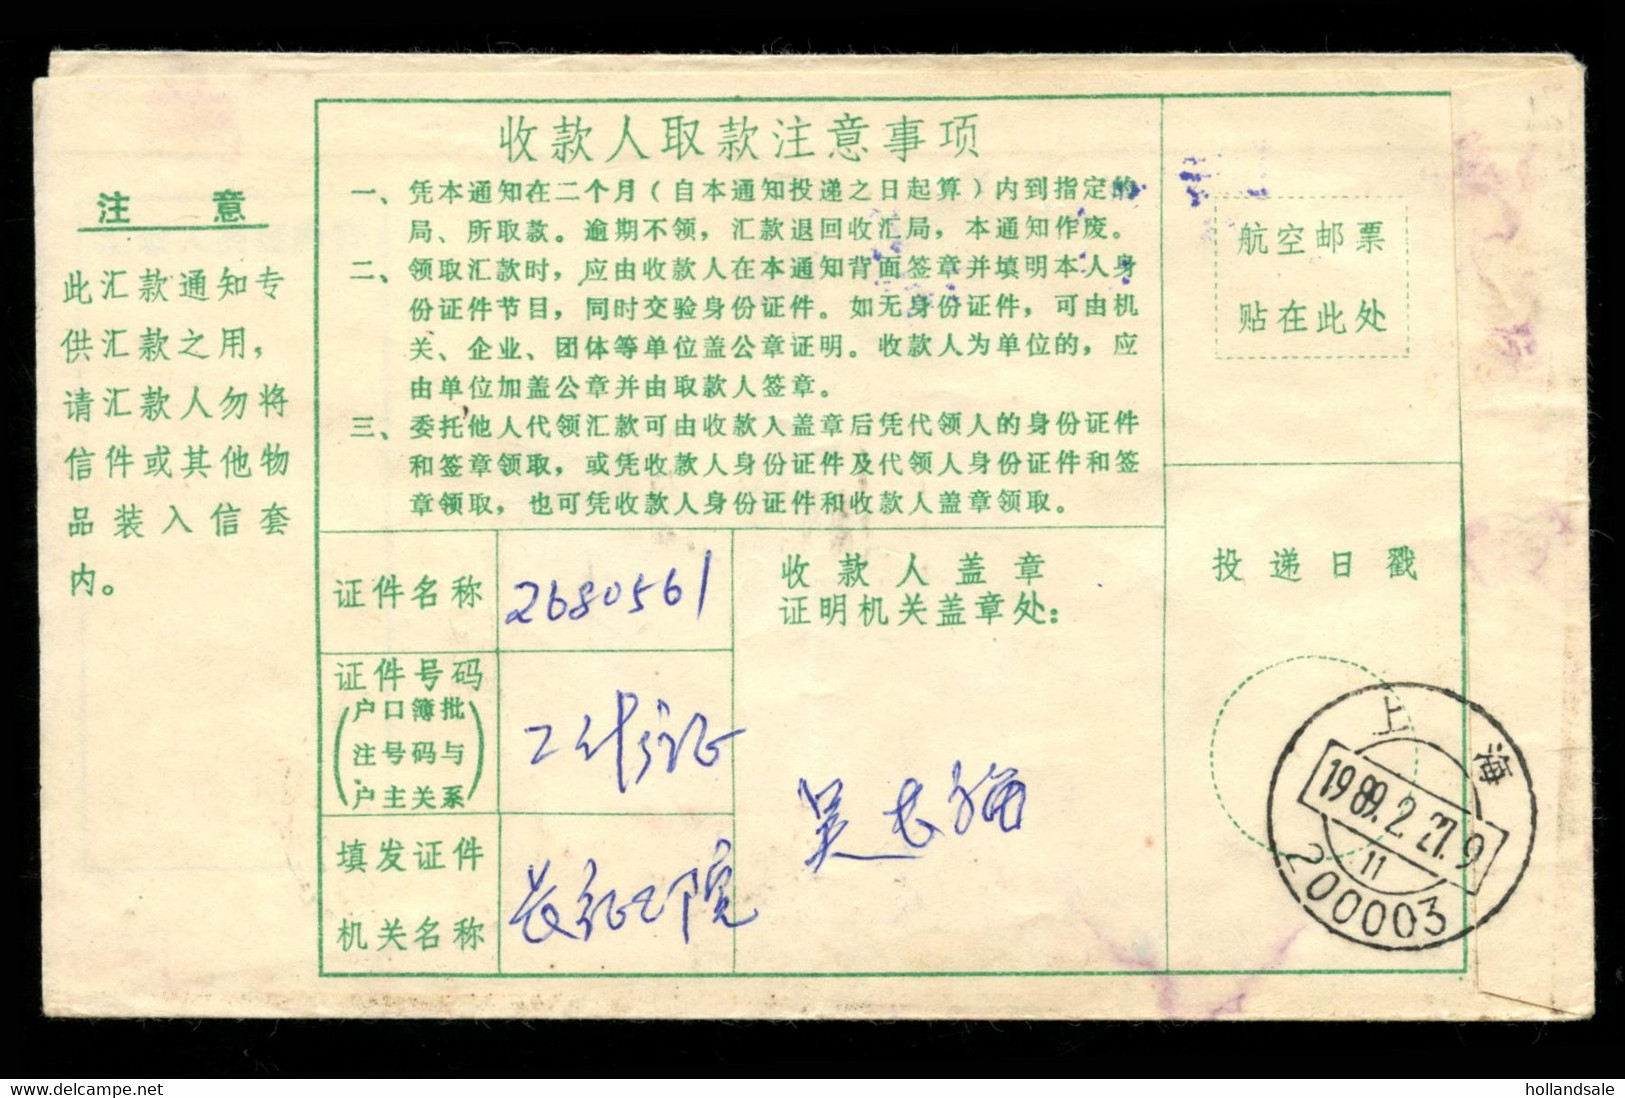 注 意
此汇款通知专
供汇款之用，
请汇款人勿将
信件或其他物
品装入信套
内。
收款人取款注意事项
一、凭本通知在二个月（自本通知投递之日起算）内到指定的
局、所取款。逾期不领，汇款退回收汇局，本通知作废。
二、领取汇款时，应由收款人在本通知背面签章并填明本人身
份证件节目，同时交验身份证件。如无身份证件，可由机
关、企业、团体等单位盖公章证明。收款人为单位的，应
由单位加盖公章并由取款人签章。
三、委托他人代领汇款可由收款人盖章后凭代领人的身份证件
和签章领取，或凭收款人身份证件及代领人身份证件和签
章领取，也可凭收款人身份证件和收款人盖章领取。
航空邮票
贴在此处
证件名称
2680561
证件号码
（户口簿批
注号码与
户主关系）
工作证
填发证件
机关名称
长征医院
收款人盖章
证明机关盖章处：
吴
投递日戳
上海
1989.2.27.9
11
200003
delcampe.net
hollandsale